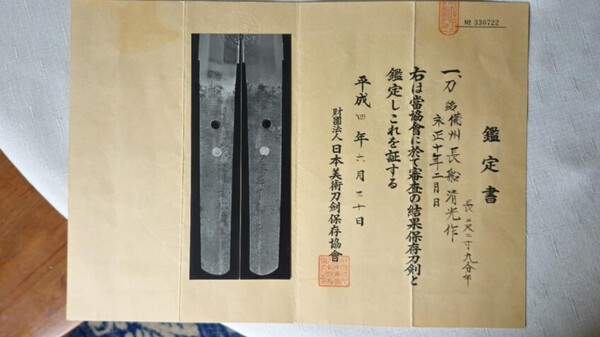 № 330722
鑑定書
一、刀 銘 備州長船清光作
永正十年二月日
長 二尺二寸九分半
右は當協會に於て審査の結果保存刀剣と
鑑定しこれを証する
平成四年六月三十日
財團法人 日本美術刀剣保存協會